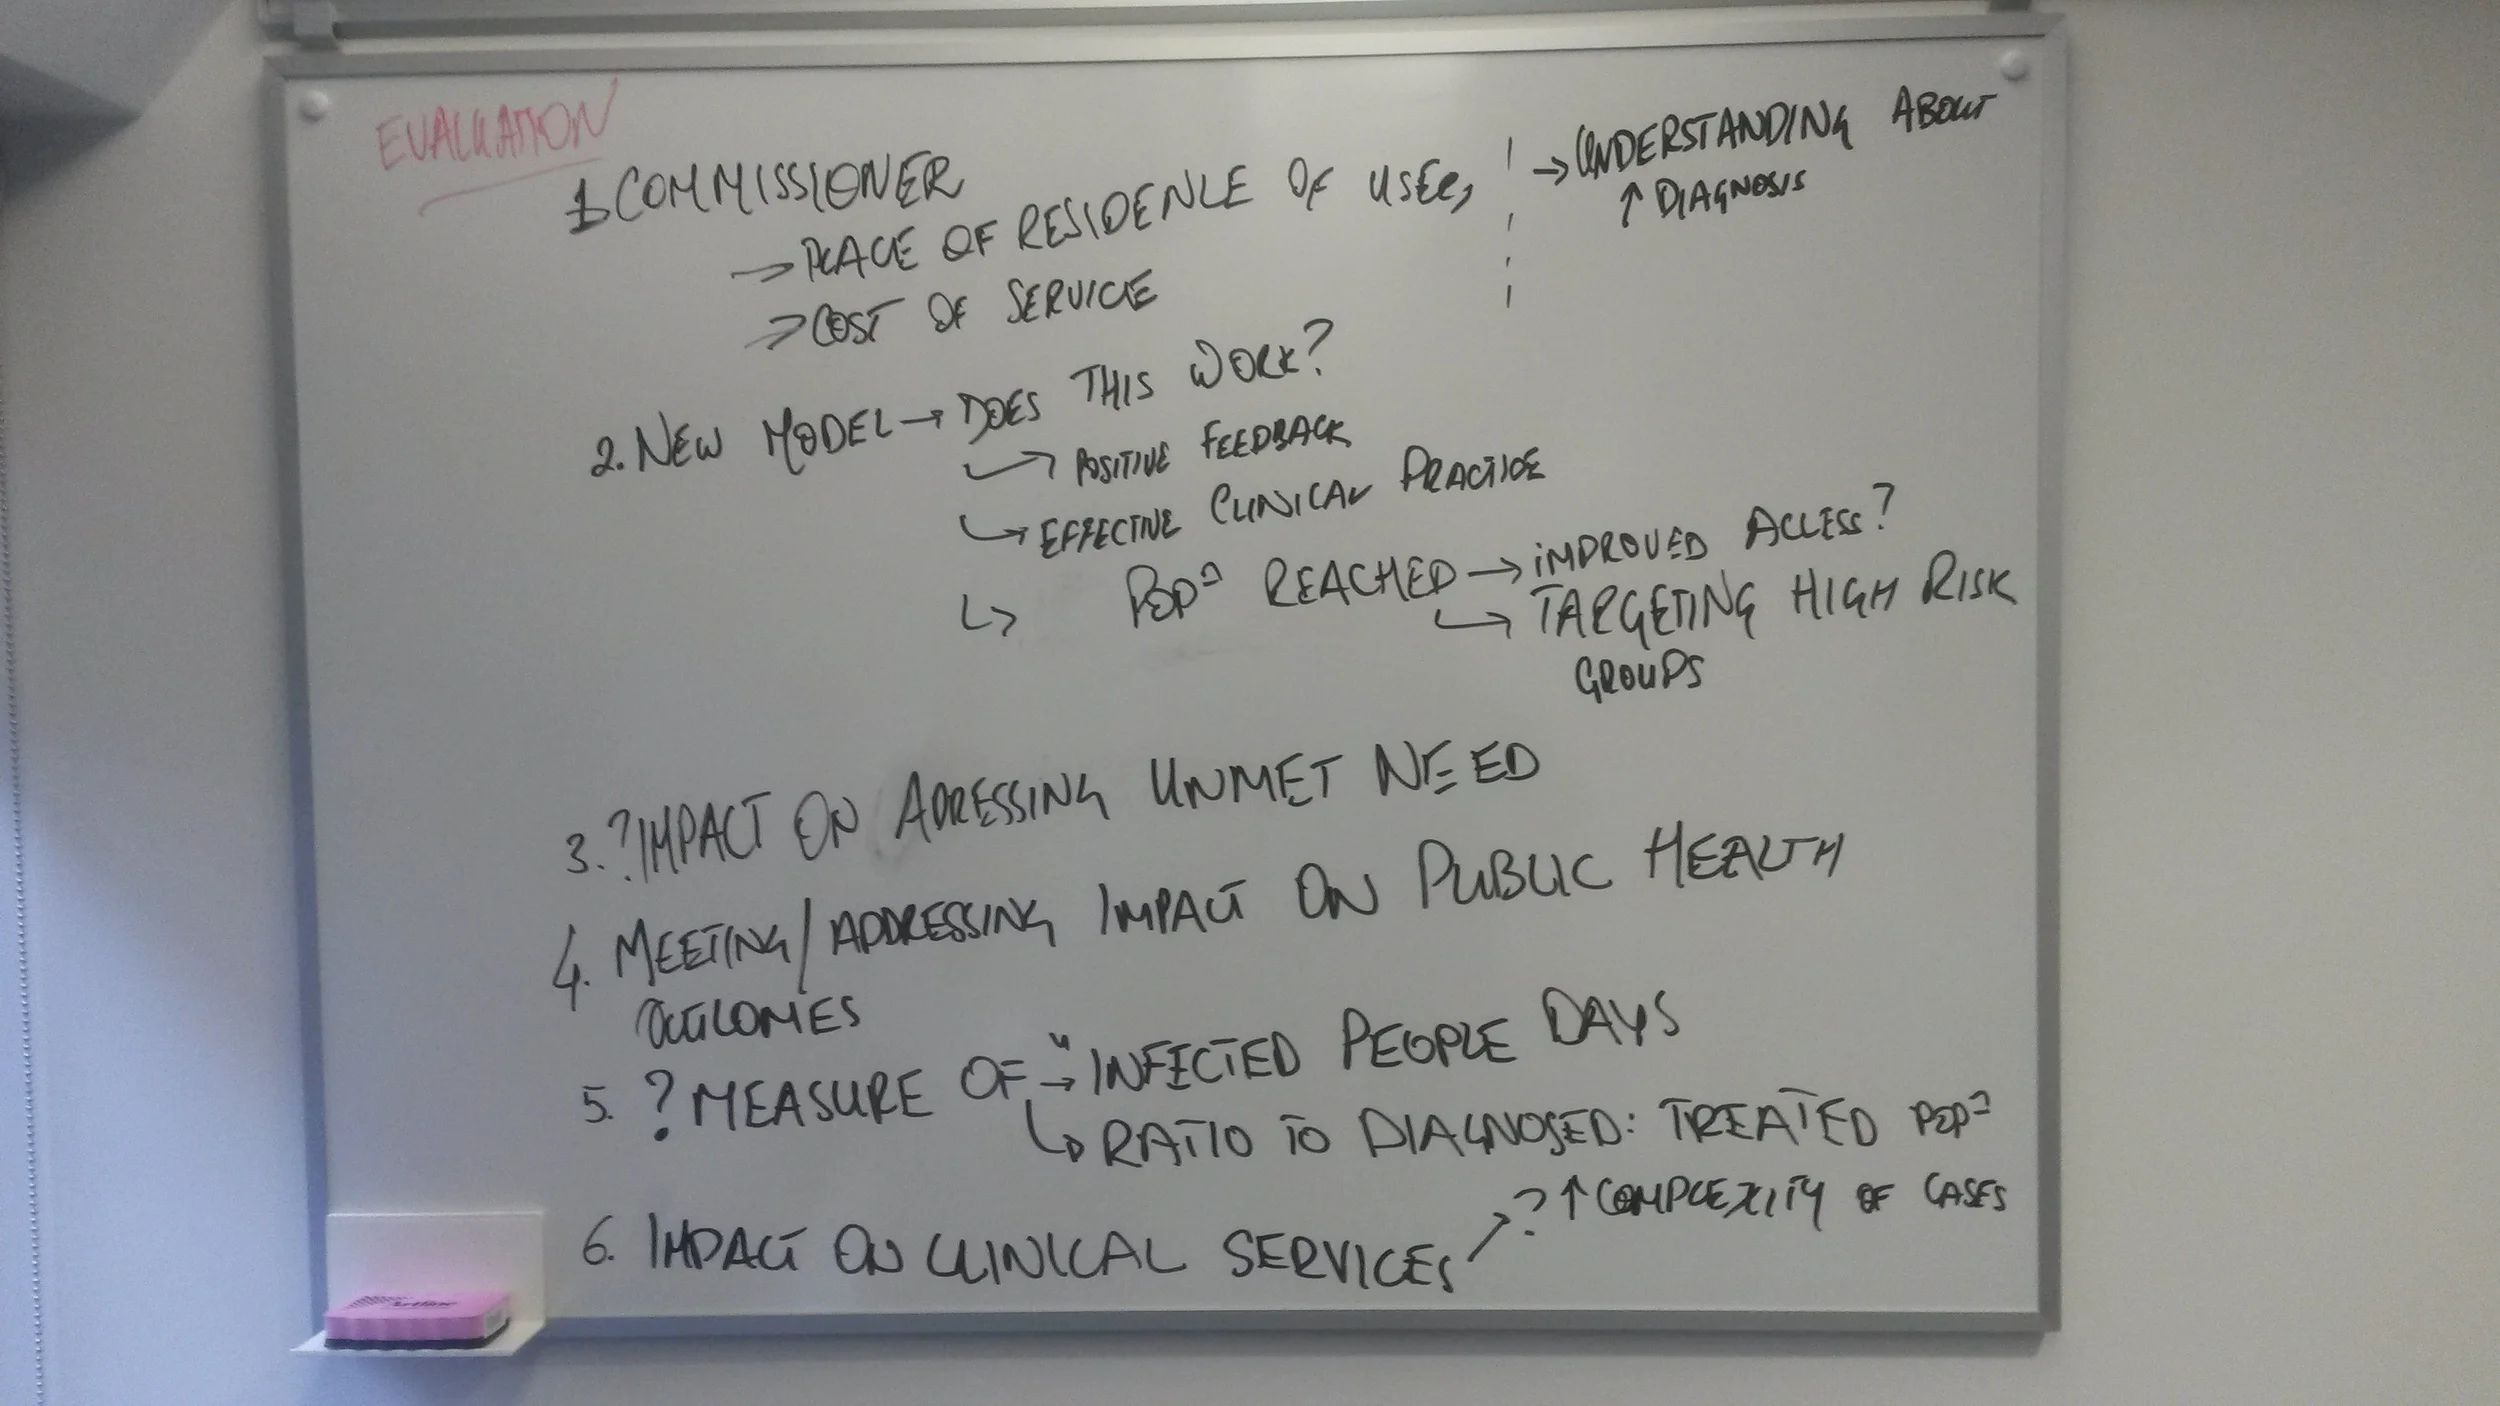 EVALUATION
1. COMMISSIONER
→ PLACE OF RESIDENCE OF USERS
→ COST OF SERVICE
→ UNDERSTANDING ABOUT
↑ DIAGNOSIS
2. NEW MODEL → DOES THIS WORK?
↳ POSITIVE FEEDBACK
↳ EFFECTIVE CLINICAL PRACTICE
↳ POPⁿ REACHED → IMPROVED ACCESS?
↳ TARGETING HIGH RISK
GROUPS
3. ?IMPACT ON ADRESSING UNMET NEED
4. MEETING/ADDRESSING IMPACT ON PUBLIC HEALTH
OUTCOMES
5. ? MEASURE OF → "INFECTED PEOPLE DAYS
↳ RATIO TO DIAGNOSED: TREATED POPⁿ
6. IMPACT ON CLINICAL SERVICES ↗ ? ↑ COMPLEXITY OF CASES
Artline